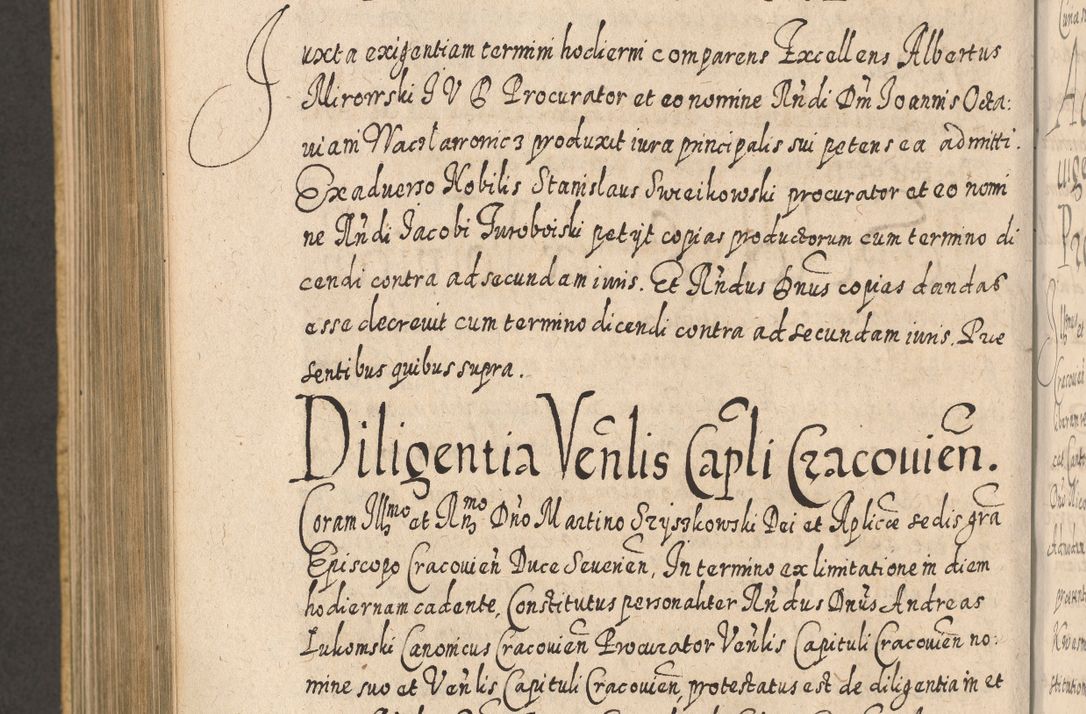 Juxta exigentiam termini hodierni comparens Excellens Albertus
Mirowski J V D Procurator et eo nomine Rñdi Dm̃ Joannis Octa:
viani Waczlawowicz produxit iura principalis sui petens ea admitti.
Ex adverso Nobilis Stanislaus Swieikowski procurator et eo nomi
ne Rñdi Jacobi Turoboiski petijt copias productorum cum termino di
cendi contra ad secundam iuris. Et Rñdus Dnũs copias dandas
esse decrevit cum termino dicendi contra ad secundam iuris. Prae
sentibus quibus supra.
Diligentia Veñlis Capl̃i Cracouieñ.
Coram Illmo et Rmo Dño Martino Szyszkowski Dei et Aplicæ sedis grã
Episcopo Cracouieñ Duce Seuerieñ, In termino ex limitatione in diem
hodiernam cadente, Constitutus personaliter Rñdus Dnũs Andreas
Lukomski Canonicus Cracouieñ Procurator Veñlis Capituli Cracouieñ no:
mine suo et Veñlis Capituli Cracouieñ, protestatus est de diligentia in et